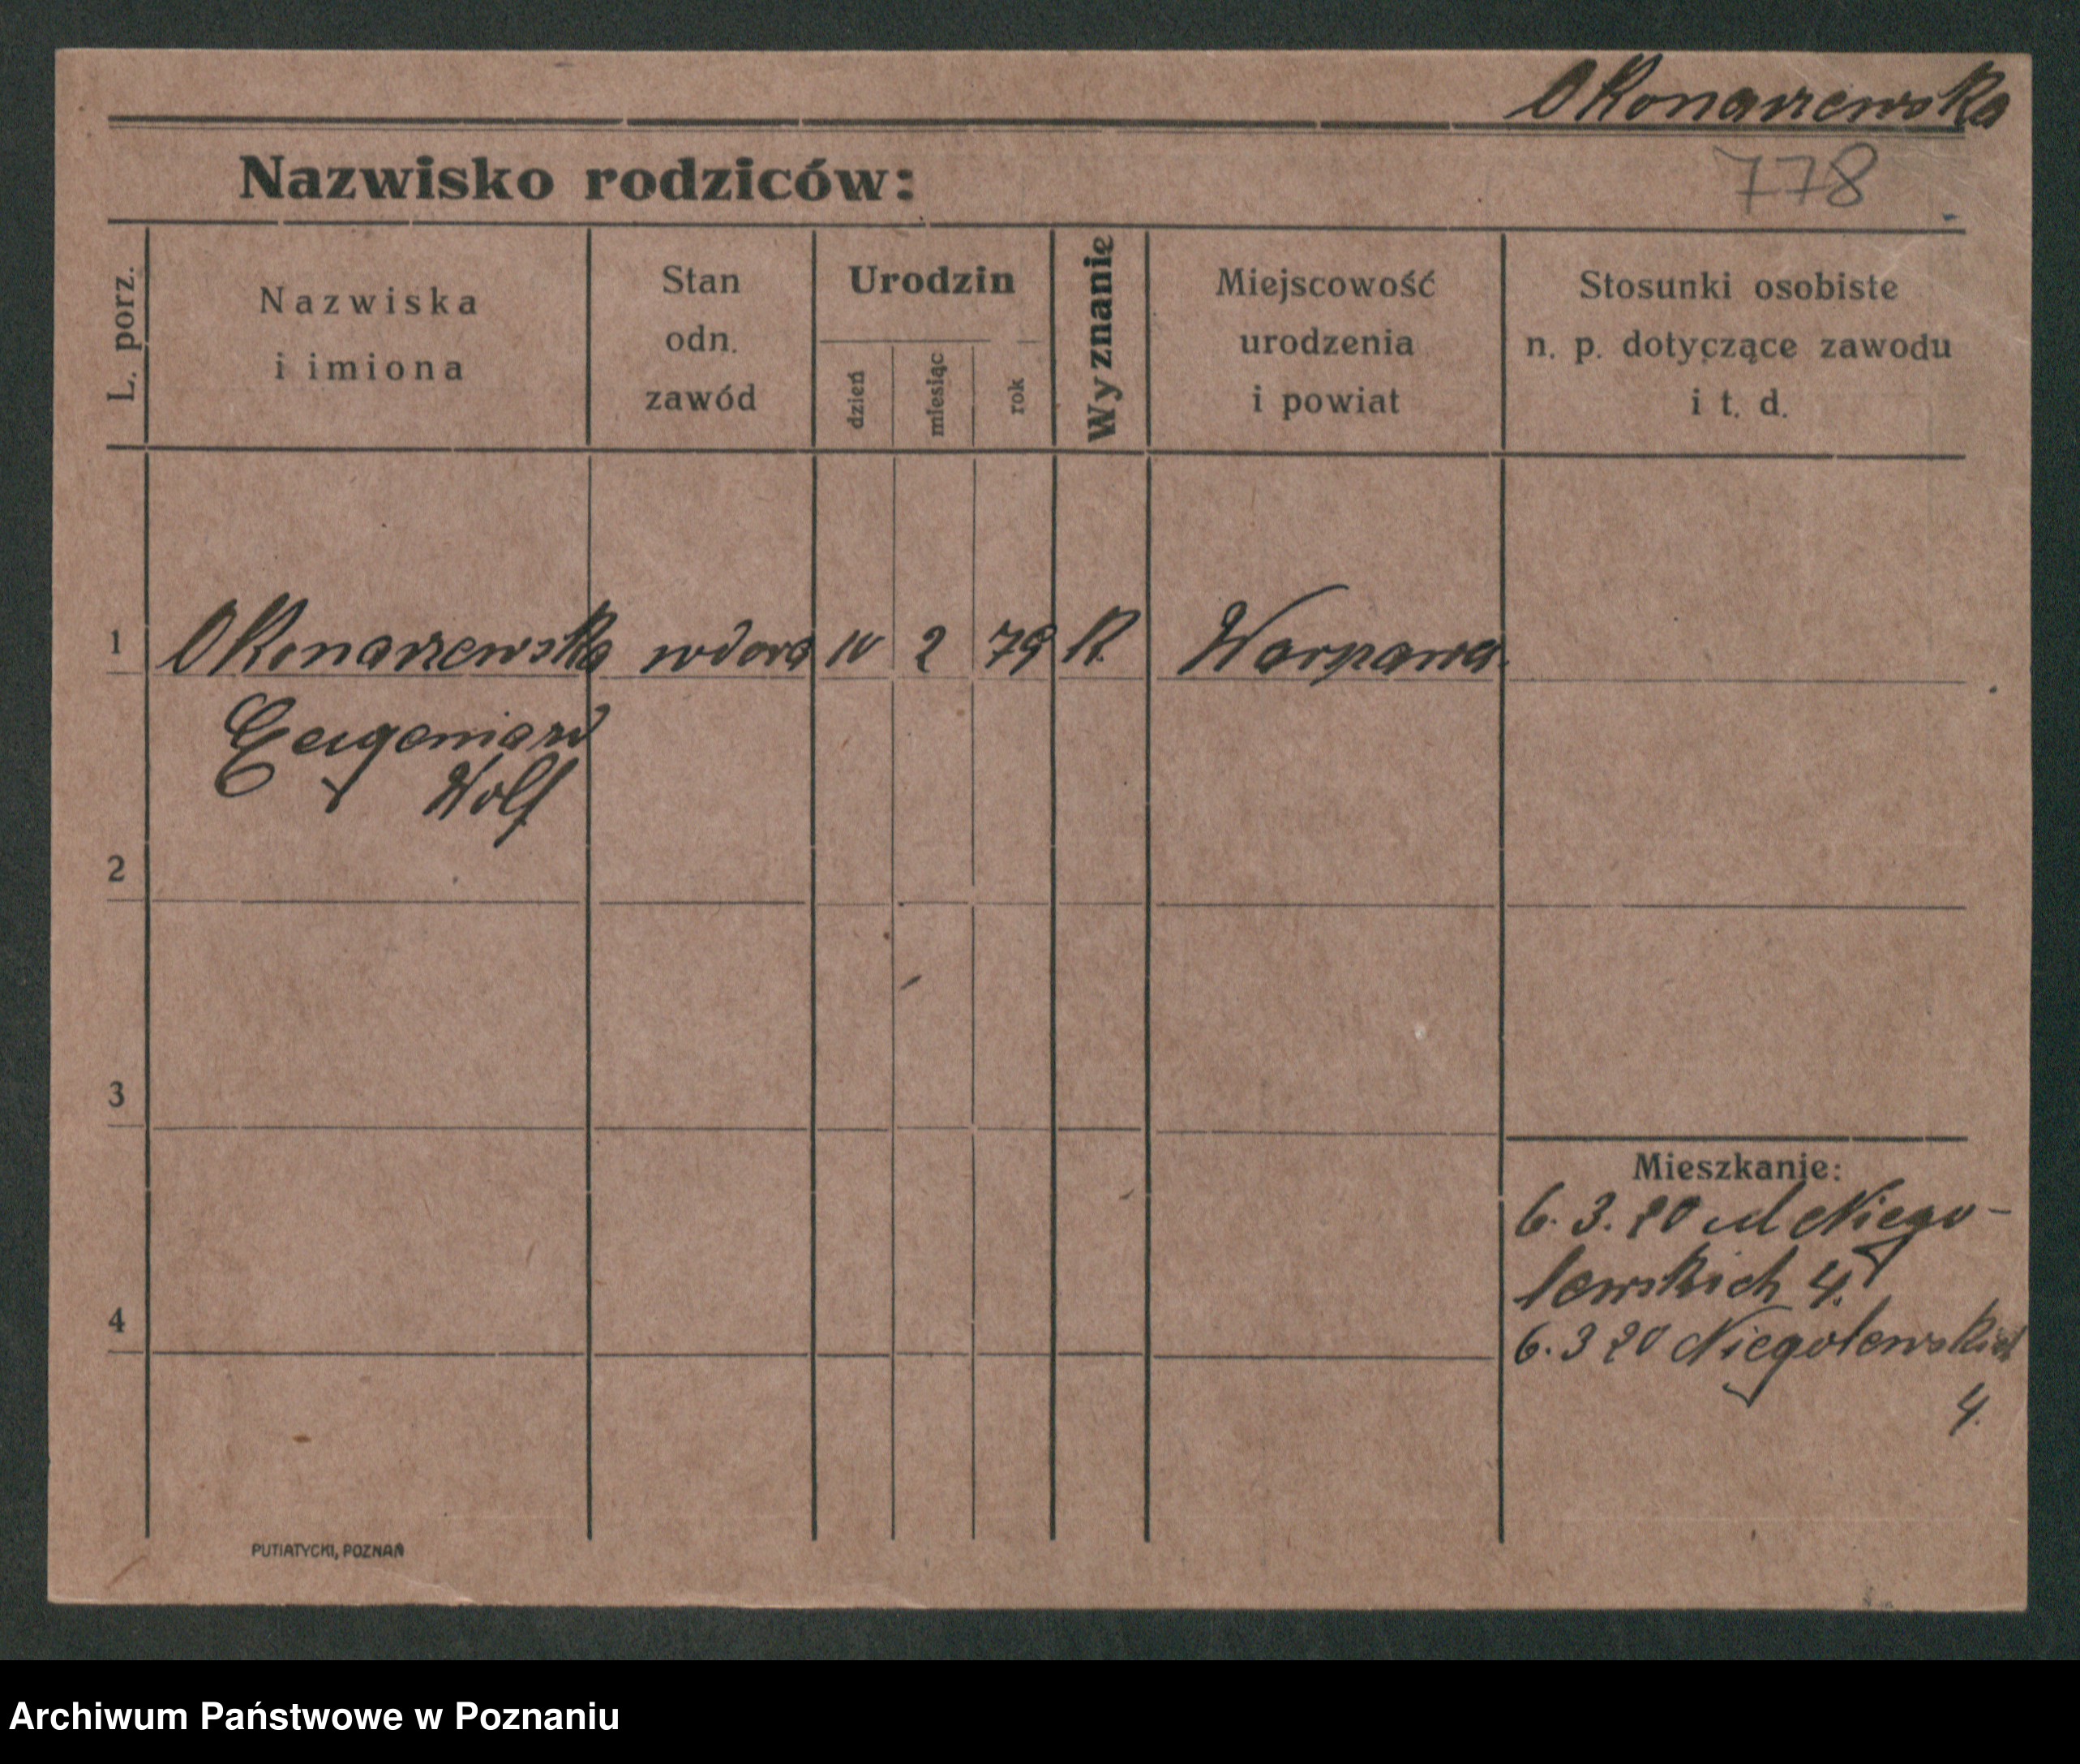 Okonarzewska
778
Nazwisko rodziców:
L. porz.
Nazwiska
i imiona
Stan
odn.
zawód
Urodzin
dzień
miesiąc
rok
Wyznanie
Miejscowość
urodzenia
i powiat
Stosunki osobiste
n. p. dotyczące zawodu
i t. d.
1 Okonarzewska wdowa 10 2 79 R. Warszawa.
Eugenia
Wolf
2
3
4
Mieszkanie:
6. 3. 20 ul Niego-
lewskich 4.
6. 3 20 Niegolewskich
4.
PUTIATYCKI, POZNAŃ
Archiwum Państwowe w Poznaniu